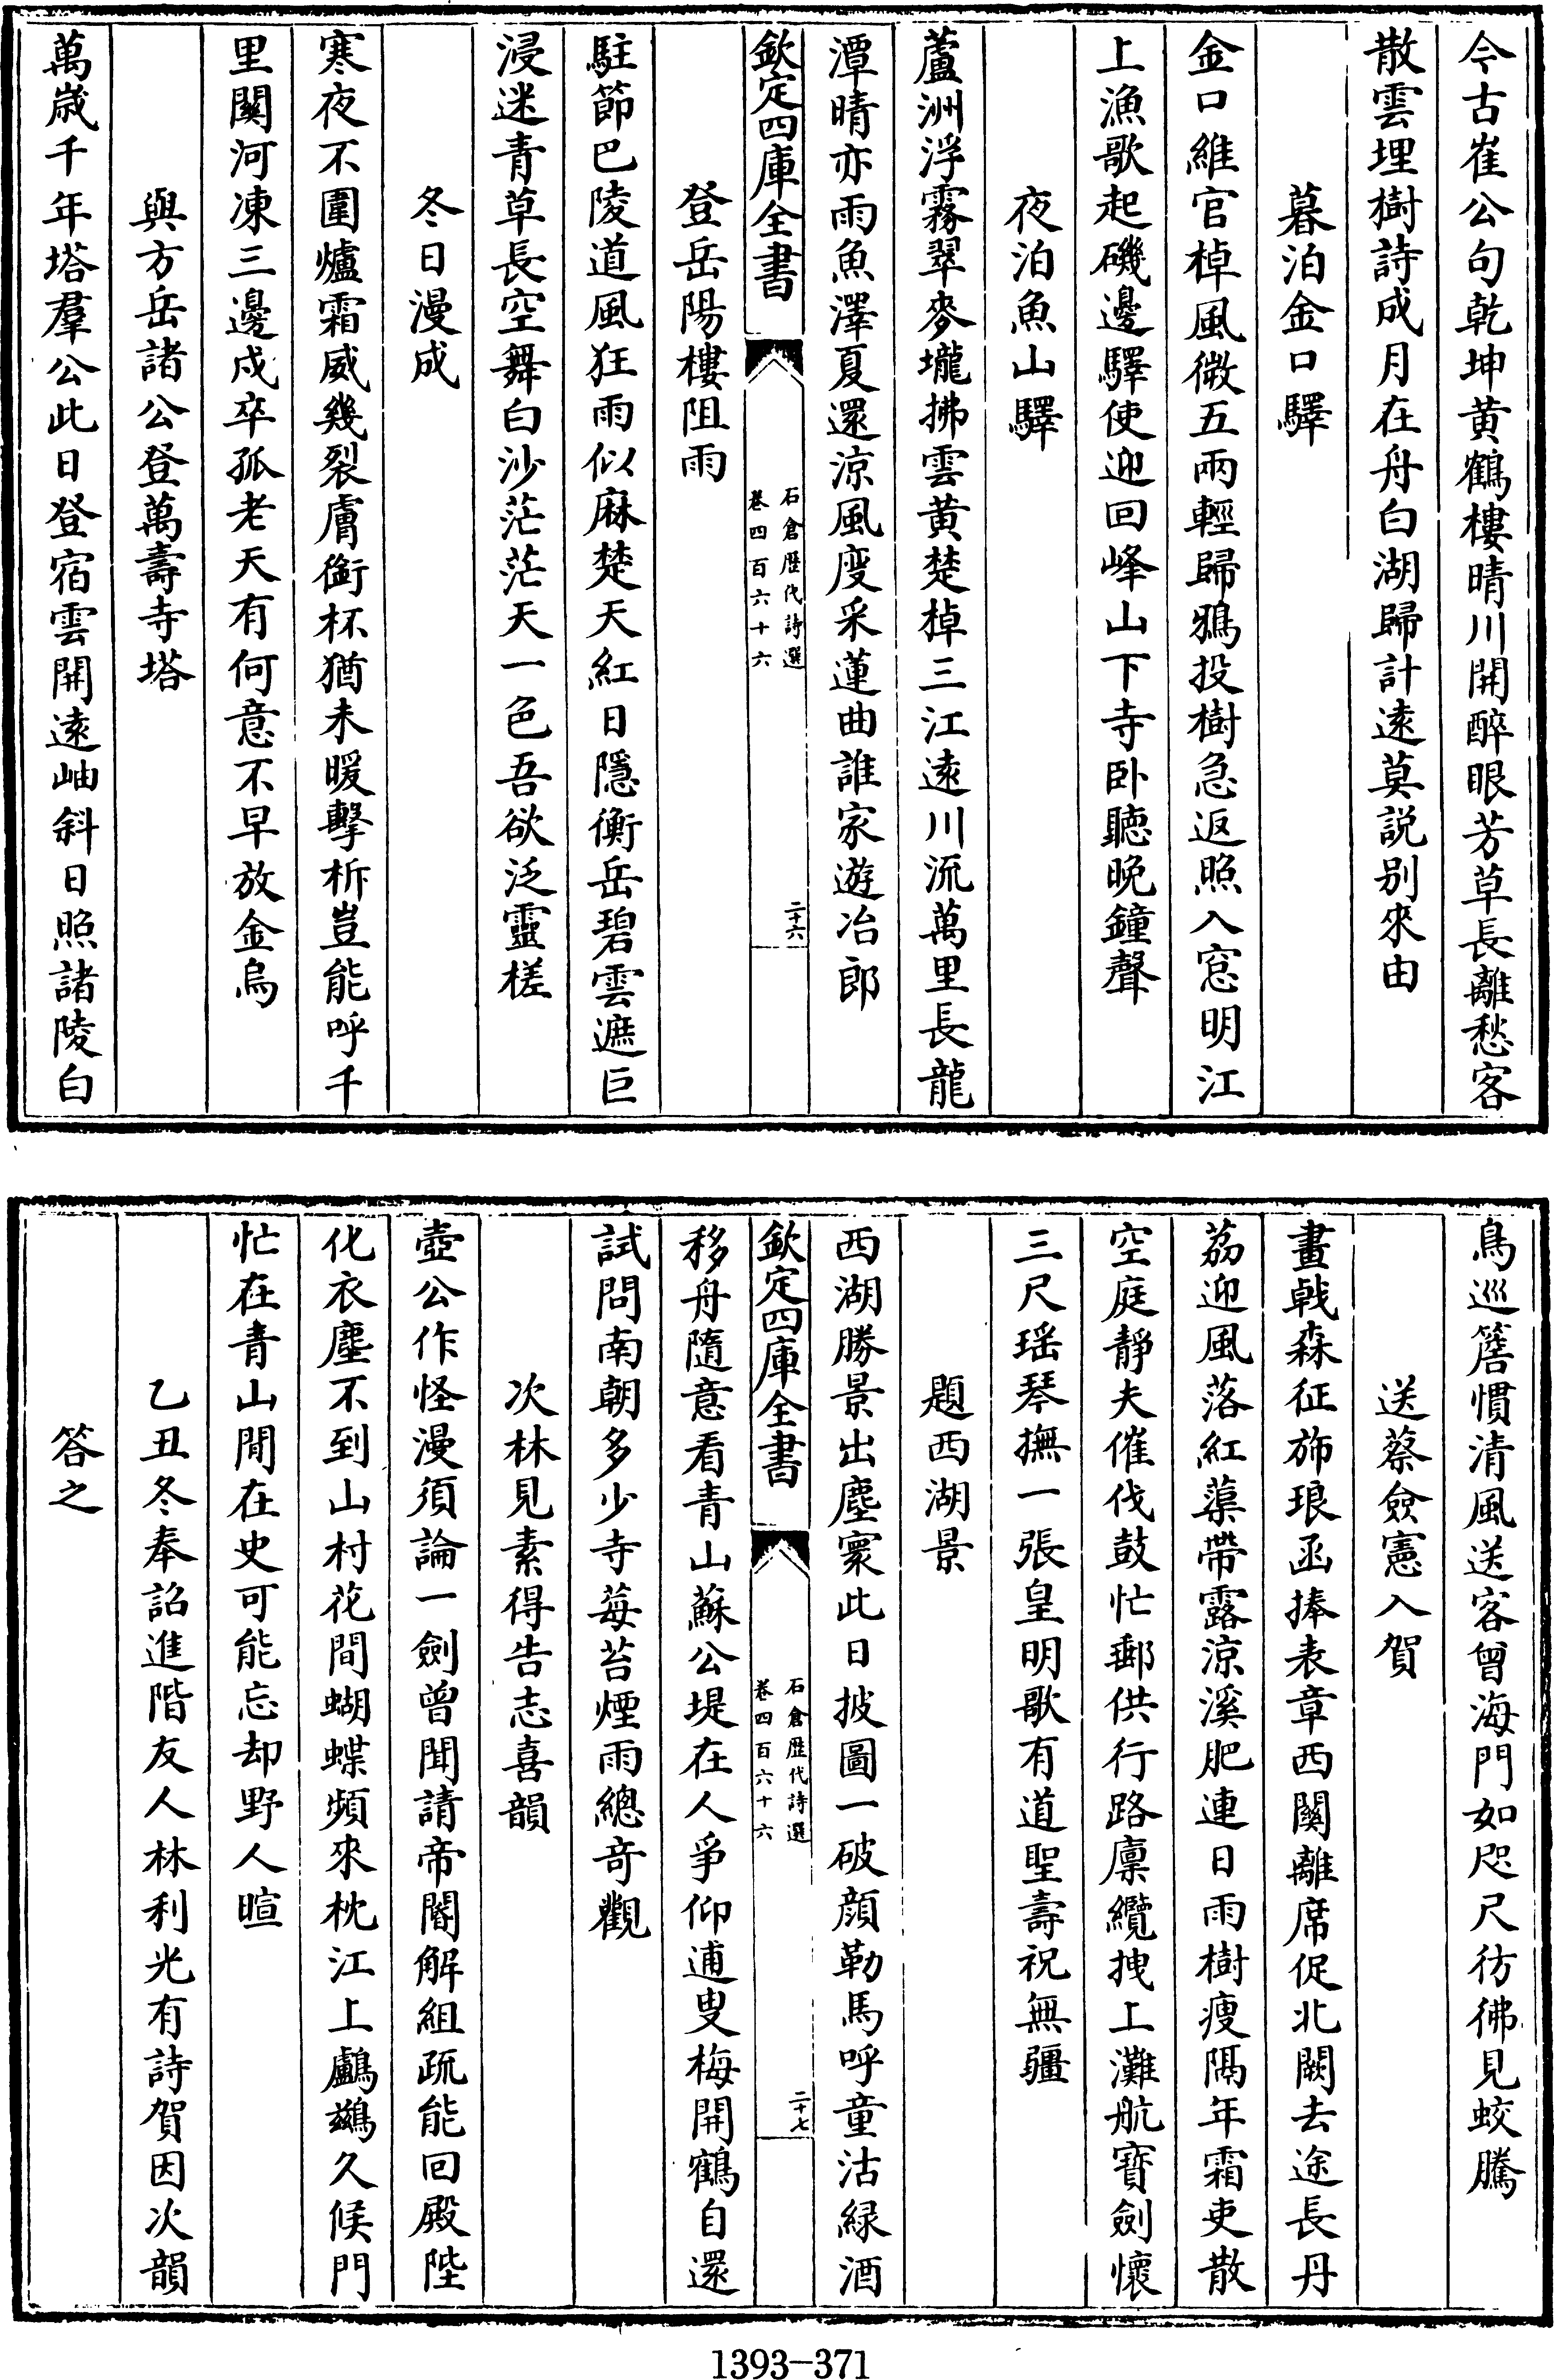 今古崔公句乾坤黄鶴樓晴川開醉眼芳草長離愁客
散雲埋樹詩成月在舟白湖歸計遠莫説别來由
暮泊金口驛
金口維官棹風微五兩輕歸鴉投樹急返照入窓明江
上漁歌起磯邊驛使迎回峰山下寺卧聽晚鐘聲
夜泊魚山驛
蘆洲浮霧翠麥壠拂雲黄楚棹三江遠川流萬里長龍
潭晴亦雨魚澤夏還涼風度采蓮曲誰家遊冶郎
欽定四庫全書
石倉歴代詩選
卷四百六十六
二十六
登岳陽樓阻雨
駐節巴陵道風狂雨似麻楚天紅日隱衡岳碧雲遮巨
浸迷青草長空舞白沙茫茫天一色吾欲泛靈槎
冬日漫成
寒夜不圍爐霜威幾裂膚銜杯猶未暖擊柝豈能呼千
里關河凍三邊戍卒孤老天有何意不早放金烏
與方岳諸公登萬壽寺塔
萬歲千年塔羣公此日登宿雲開遠岫斜日照諸陵白
鳥巡簷慣清風送客曾海門如咫尺彷彿見蛟騰
送蔡僉憲入賀
畫戟森征斾琅函捧表章西闗離席促北闕去途長丹
荔迎風落紅蕖帶露涼溪肥連日雨樹瘦隔年霜吏散
空庭靜夫催伐鼓忙郵供行路廩纜拽上灘航寶劍懷
三尺瑶琴撫一張皇明歌有道聖壽祝無疆
題西湖景
西湖勝景出塵寰此日披圖一破顔勒馬呼童沽緑酒
欽定四庫全書
石倉歴代詩選
卷四百六十六
二十七
移舟隨意看青山蘇公堤在人爭仰逋叟梅開鶴自還
試問南朝多少寺莓苔煙雨總竒觀
次林見素得告志喜韻
壺公作怪漫須論一劍曾聞請帝閽解組疏能回殿陛
化衣塵不到山村花間蝴蝶頻來枕江上鸕鷀久候門
忙在青山閒在史可能忘却野人暄
乙丑冬奉詔進階友人林利光有詩賀因次韻
答之
1393-371